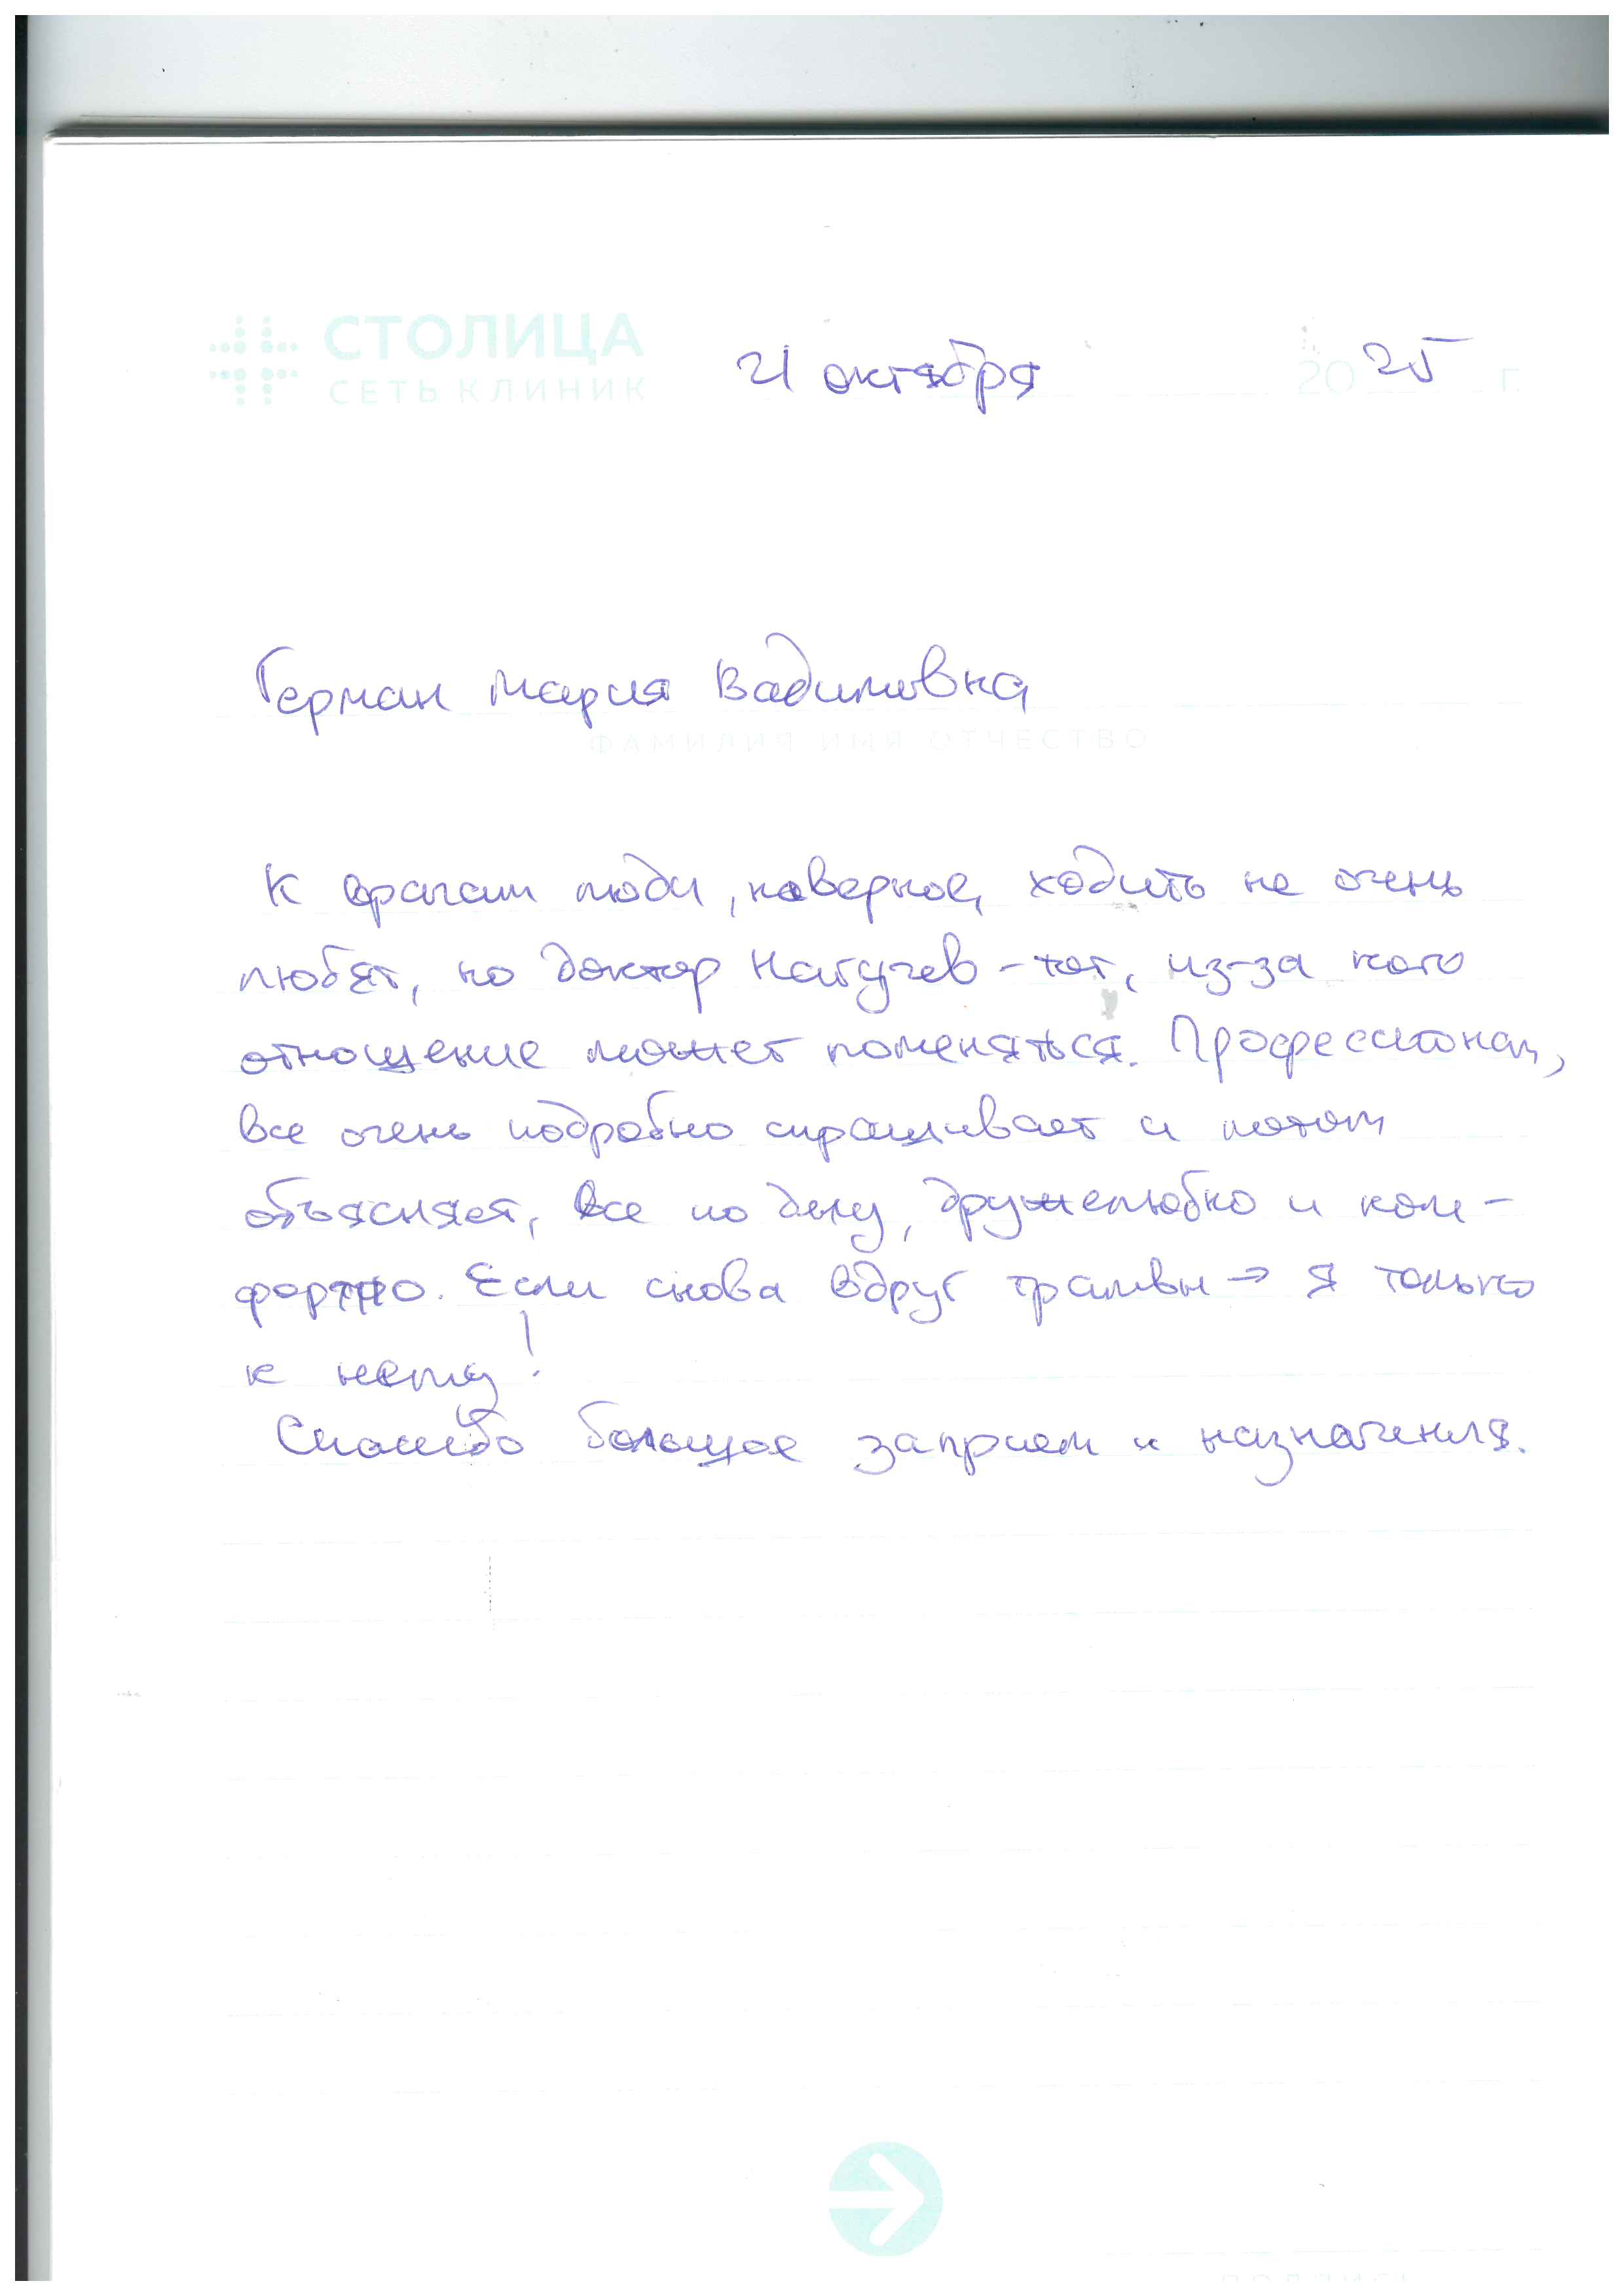 СТОЛИЦА
СЕТЬ КЛИНИК
21 октября 2025 г.
Герман Мария Вадимовна
ФАМИЛИЯ ИМЯ ОТЧЕСТВО
К врачам люди, наверное, ходить не очень
любят, но доктор Нагучев - тот, из-за кого
отношение может поменяться. Профессионал,
все очень подробно спрашивает и потом
объясняет, все по делу, дружелюбно и ком-
фортно. Если снова вдруг травмы → я только
к нему!
Спасибо большое за прием и назначения.